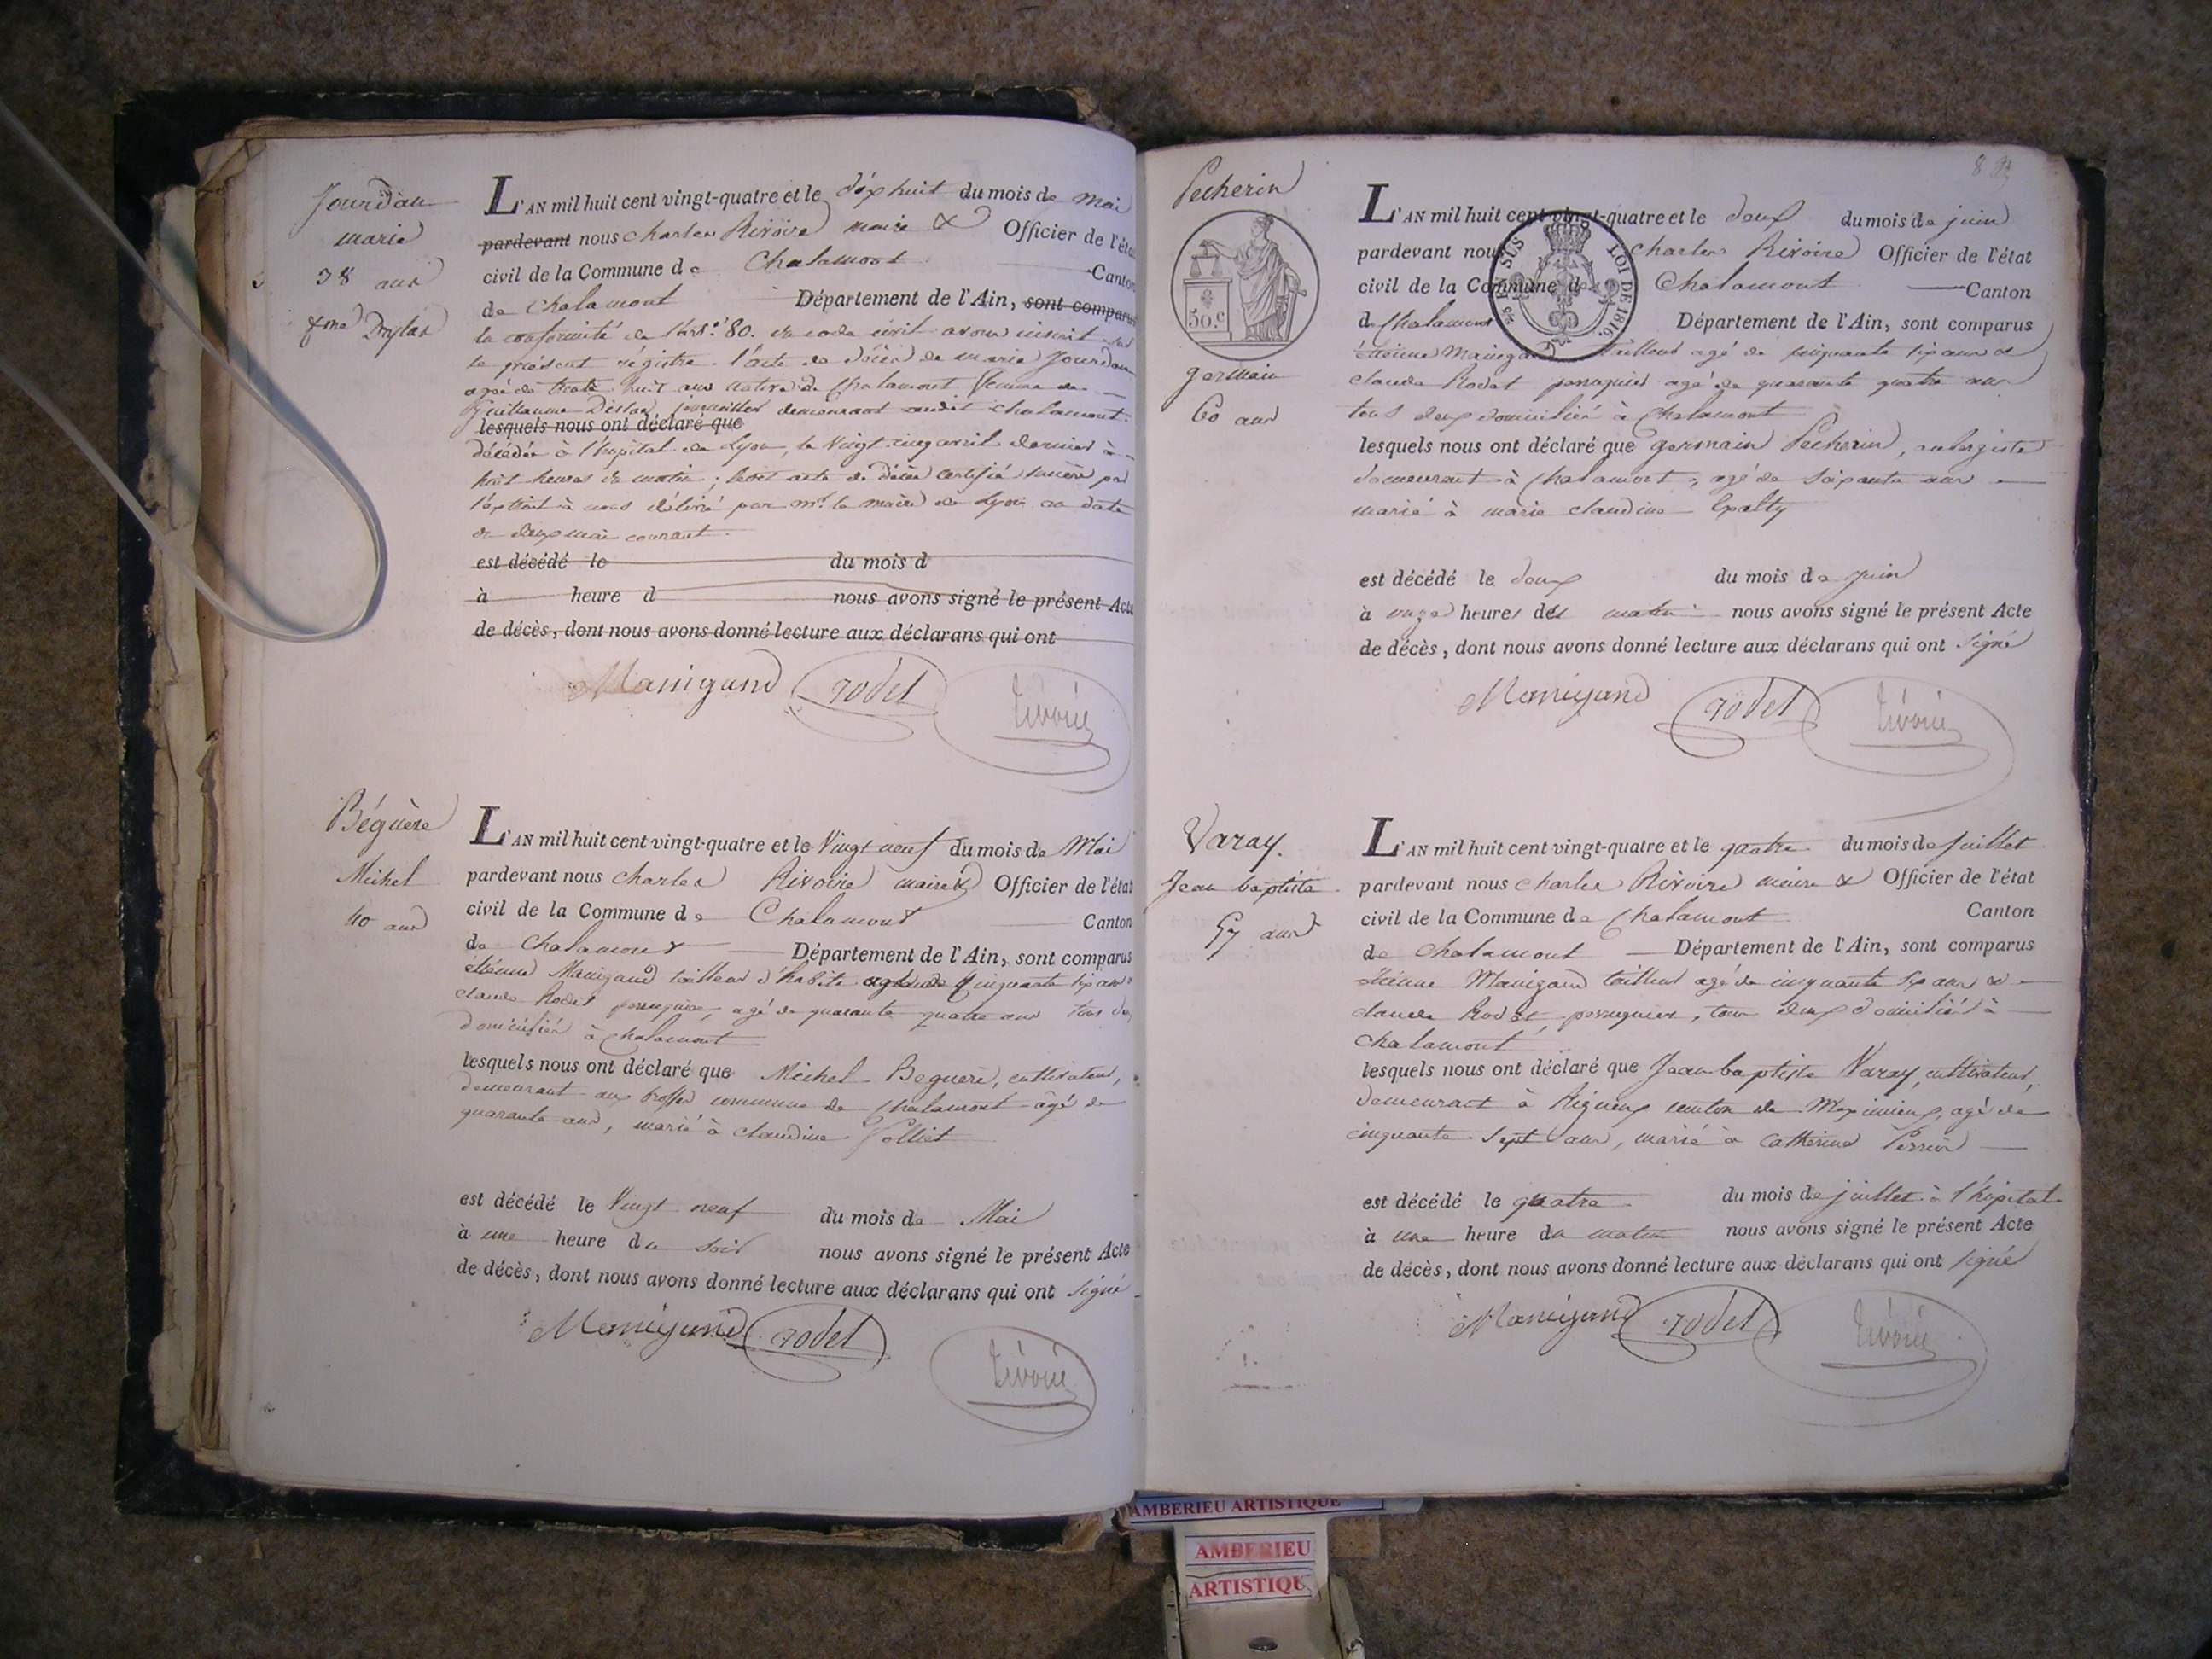 Jourdan
marie
38 ans
fme Deylas
L'AN mil huit cent vingt-quatre et le dix huit du mois de Mai
pardevant nous charles Rivoire maire & Officier de l'état
civil de la Commune de Chalamont Canton
de Chalamont Département de l'Ain, sont comparus
la conformité de l'art. 80. du code civil avons inscrit sur
le présent régistre l'acte de décès de marie Jourdan
agée de trente huit ans native de Chalamont femme de
Guillaume journalier demeurant audit chalamont.
lesquels nous ont déclaré que
décédée à l'hopital de Lyon, le Vingt cinq avril dernier à
huit heures du matin ; ledit acte de décès certifié sincère par
l'extrait à nous délivré par mr. le maire de Lyon en date
du deux mai courant.
est décédé le du mois d
à heure d nous avons signé le présent Acte
de décès, dont nous avons donné lecture aux déclarans qui ont
Manigand rodet rivoire
Béguère
Michel
40 ans
L'AN mil huit cent vingt-quatre et le Vingt neuf du mois de Mai
pardevant nous charles Rivoire maire & Officier de l'état
civil de la Commune de Chalamont Canton
de Chalamont Département de l'Ain, sont comparus
étienne Manigand tailleur d'habits agé de Cinquante six ans &
claude Rodet perruquier, agé de quarante quatre ans tous deux
domiciliés à Chalamont
lesquels nous ont déclaré que Michel Beguere, cultivateur,
demeurant aux brosses commune de Chalamont âgé de
quarante ans, marié à claudine Folliet
est décédé le Vingt neuf du mois de Mai
à une heure du soir nous avons signé le présent Acte
de décès, dont nous avons donné lecture aux déclarans qui ont signé
Manigand rodet rivoire
8
Pecherin
50.c
germain
60 ans
EN SUS LOI DE 1816.
L'AN mil huit cent vingt-quatre et le deux du mois de juin
pardevant nous charles Rivoire Officier de l'état
civil de la Commune de Chalamont Canton
de Chalamont Département de l'Ain, sont comparus
étienne Manigand tailleur agé de cinquante six ans &
claude Rodet perruquier agé de quarante quatre ans
tous deux domiciliés à Chalamont
lesquels nous ont déclaré que germain Pecherin, aubergiste
demeurant à Chalamont, agé de soixante ans
marié à marie claudine
est décédé le deux du mois de juin
à onze heures du matin nous avons signé le présent Acte
de décès, dont nous avons donné lecture aux déclarans qui ont signé
Manigand rodet rivoire
Varay.
Jean baptiste
57 ans
L'AN mil huit cent vingt-quatre et le quatre du mois de juillet
pardevant nous charles Rivoire maire & Officier de l'état
civil de la Commune de Chalamont Canton
de Chalamont Département de l'Ain, sont comparus
étienne Manigand tailleur agé de cinquante six ans &
claude Rodet, perruquier, tous deux domiciliés à
chalamont
lesquels nous ont déclaré que Jean baptiste Varay, cultivateur,
demeurant à Rigneux canton de Meximieux, agé de
cinquante sept ans, marié à Catherine Perrin
est décédé le quatre du mois de juillet à l'hopital
à une heure du matin nous avons signé le présent Acte
de décès, dont nous avons donné lecture aux déclarans qui ont signé
Manigand rodet rivoire
AMBERIEU ARTISTIQUE
AMBERIEU
ARTISTIQU